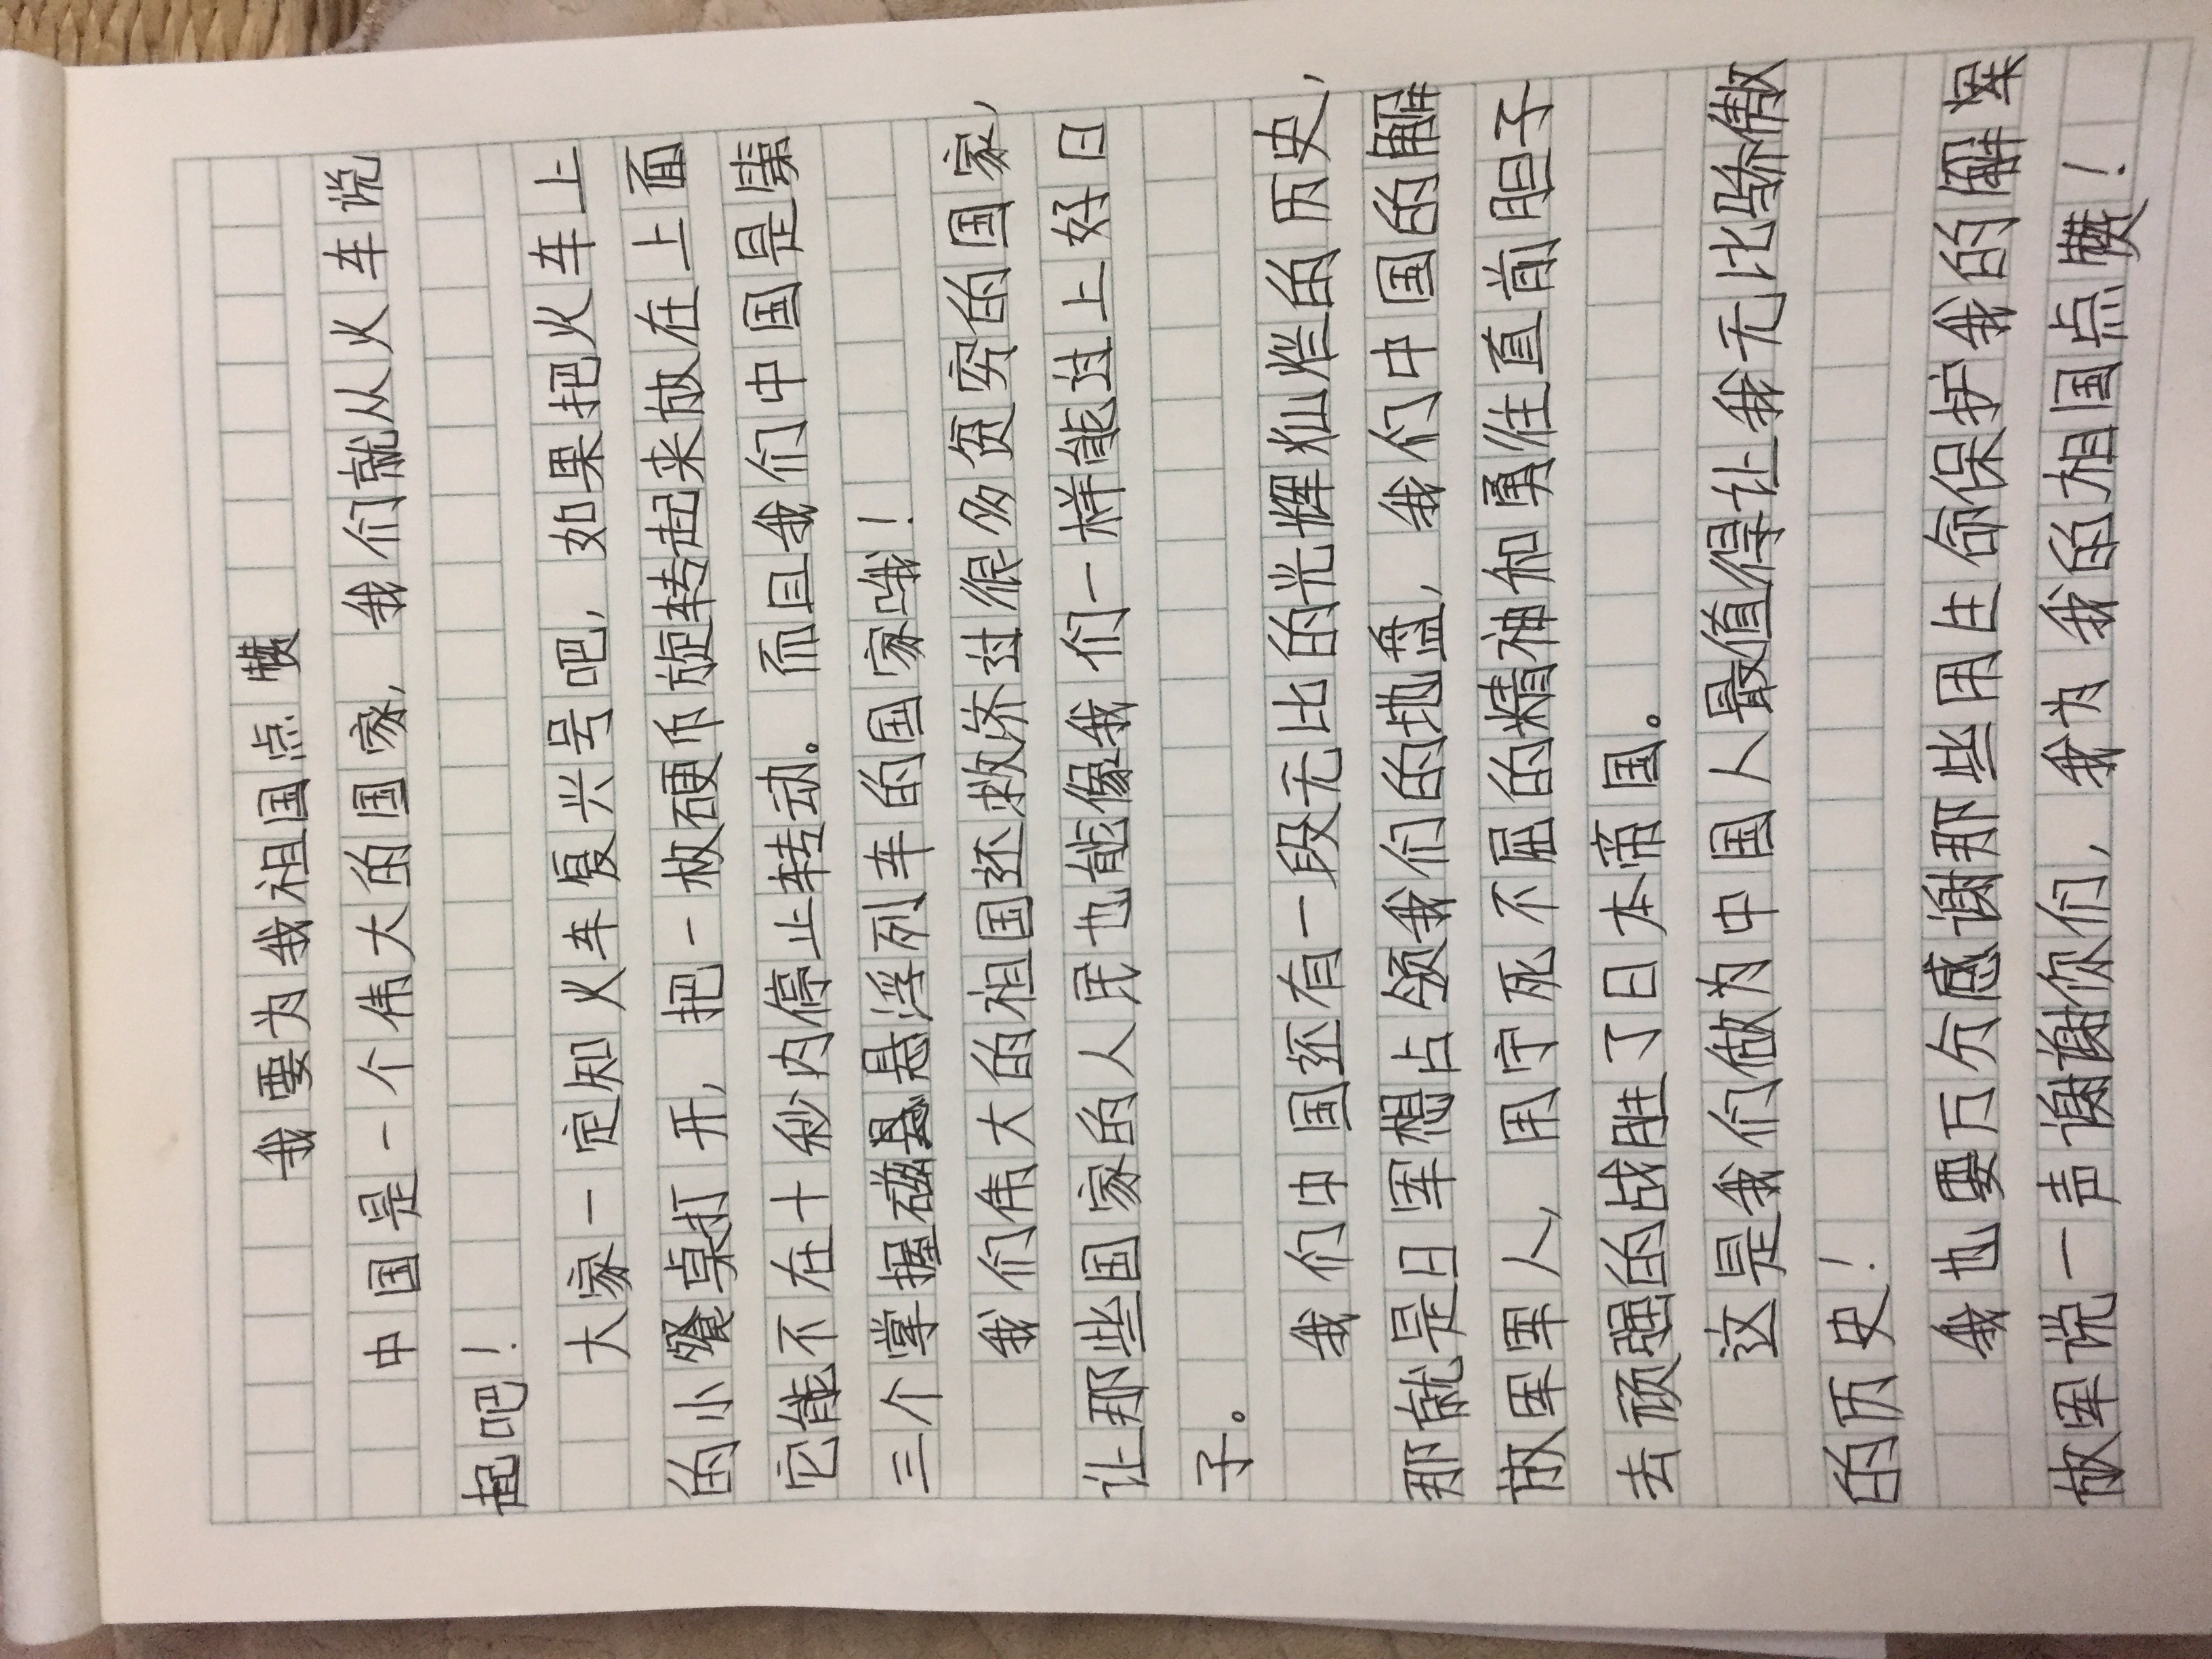 我要为我祖国点赞
中国是一个伟大的国家，我们就从火车说
起吧！
大家一定知火车复兴号吧，如果把火车上
的小餐桌打开，把一枚硬币旋转起来放在上面
它能不在十秒内停止转动。而且我们中国是第
三个掌握磁悬浮列车的国家哦！
我们伟大的祖国还救济过很多贫穷的国家，
让那些国家的人民也能像我们一样能过上好日
子。
我们中国还有一段无比的光辉灿烂的历史，
那就是日军想占领我们的地盘，我们中国的解
放军军人，用宁死不屈的精神和勇往直前胆子
去顽强的战胜了日本帝国。
这是我们做为中国人最值得让我无比骄傲
的历史！
我也要万分感谢那些用生命保护我的解
放军说一声谢谢你们，我为我的祖国点赞！